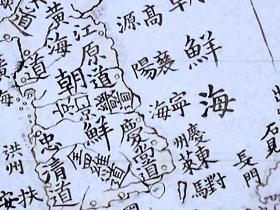 鮮海
高
源
襄陽
寧海
江原道
黃海道
朝鮮
京
忠清道
慶
道
全羅道
洪州
扶
安
慶州
東來
對馬
長門
見